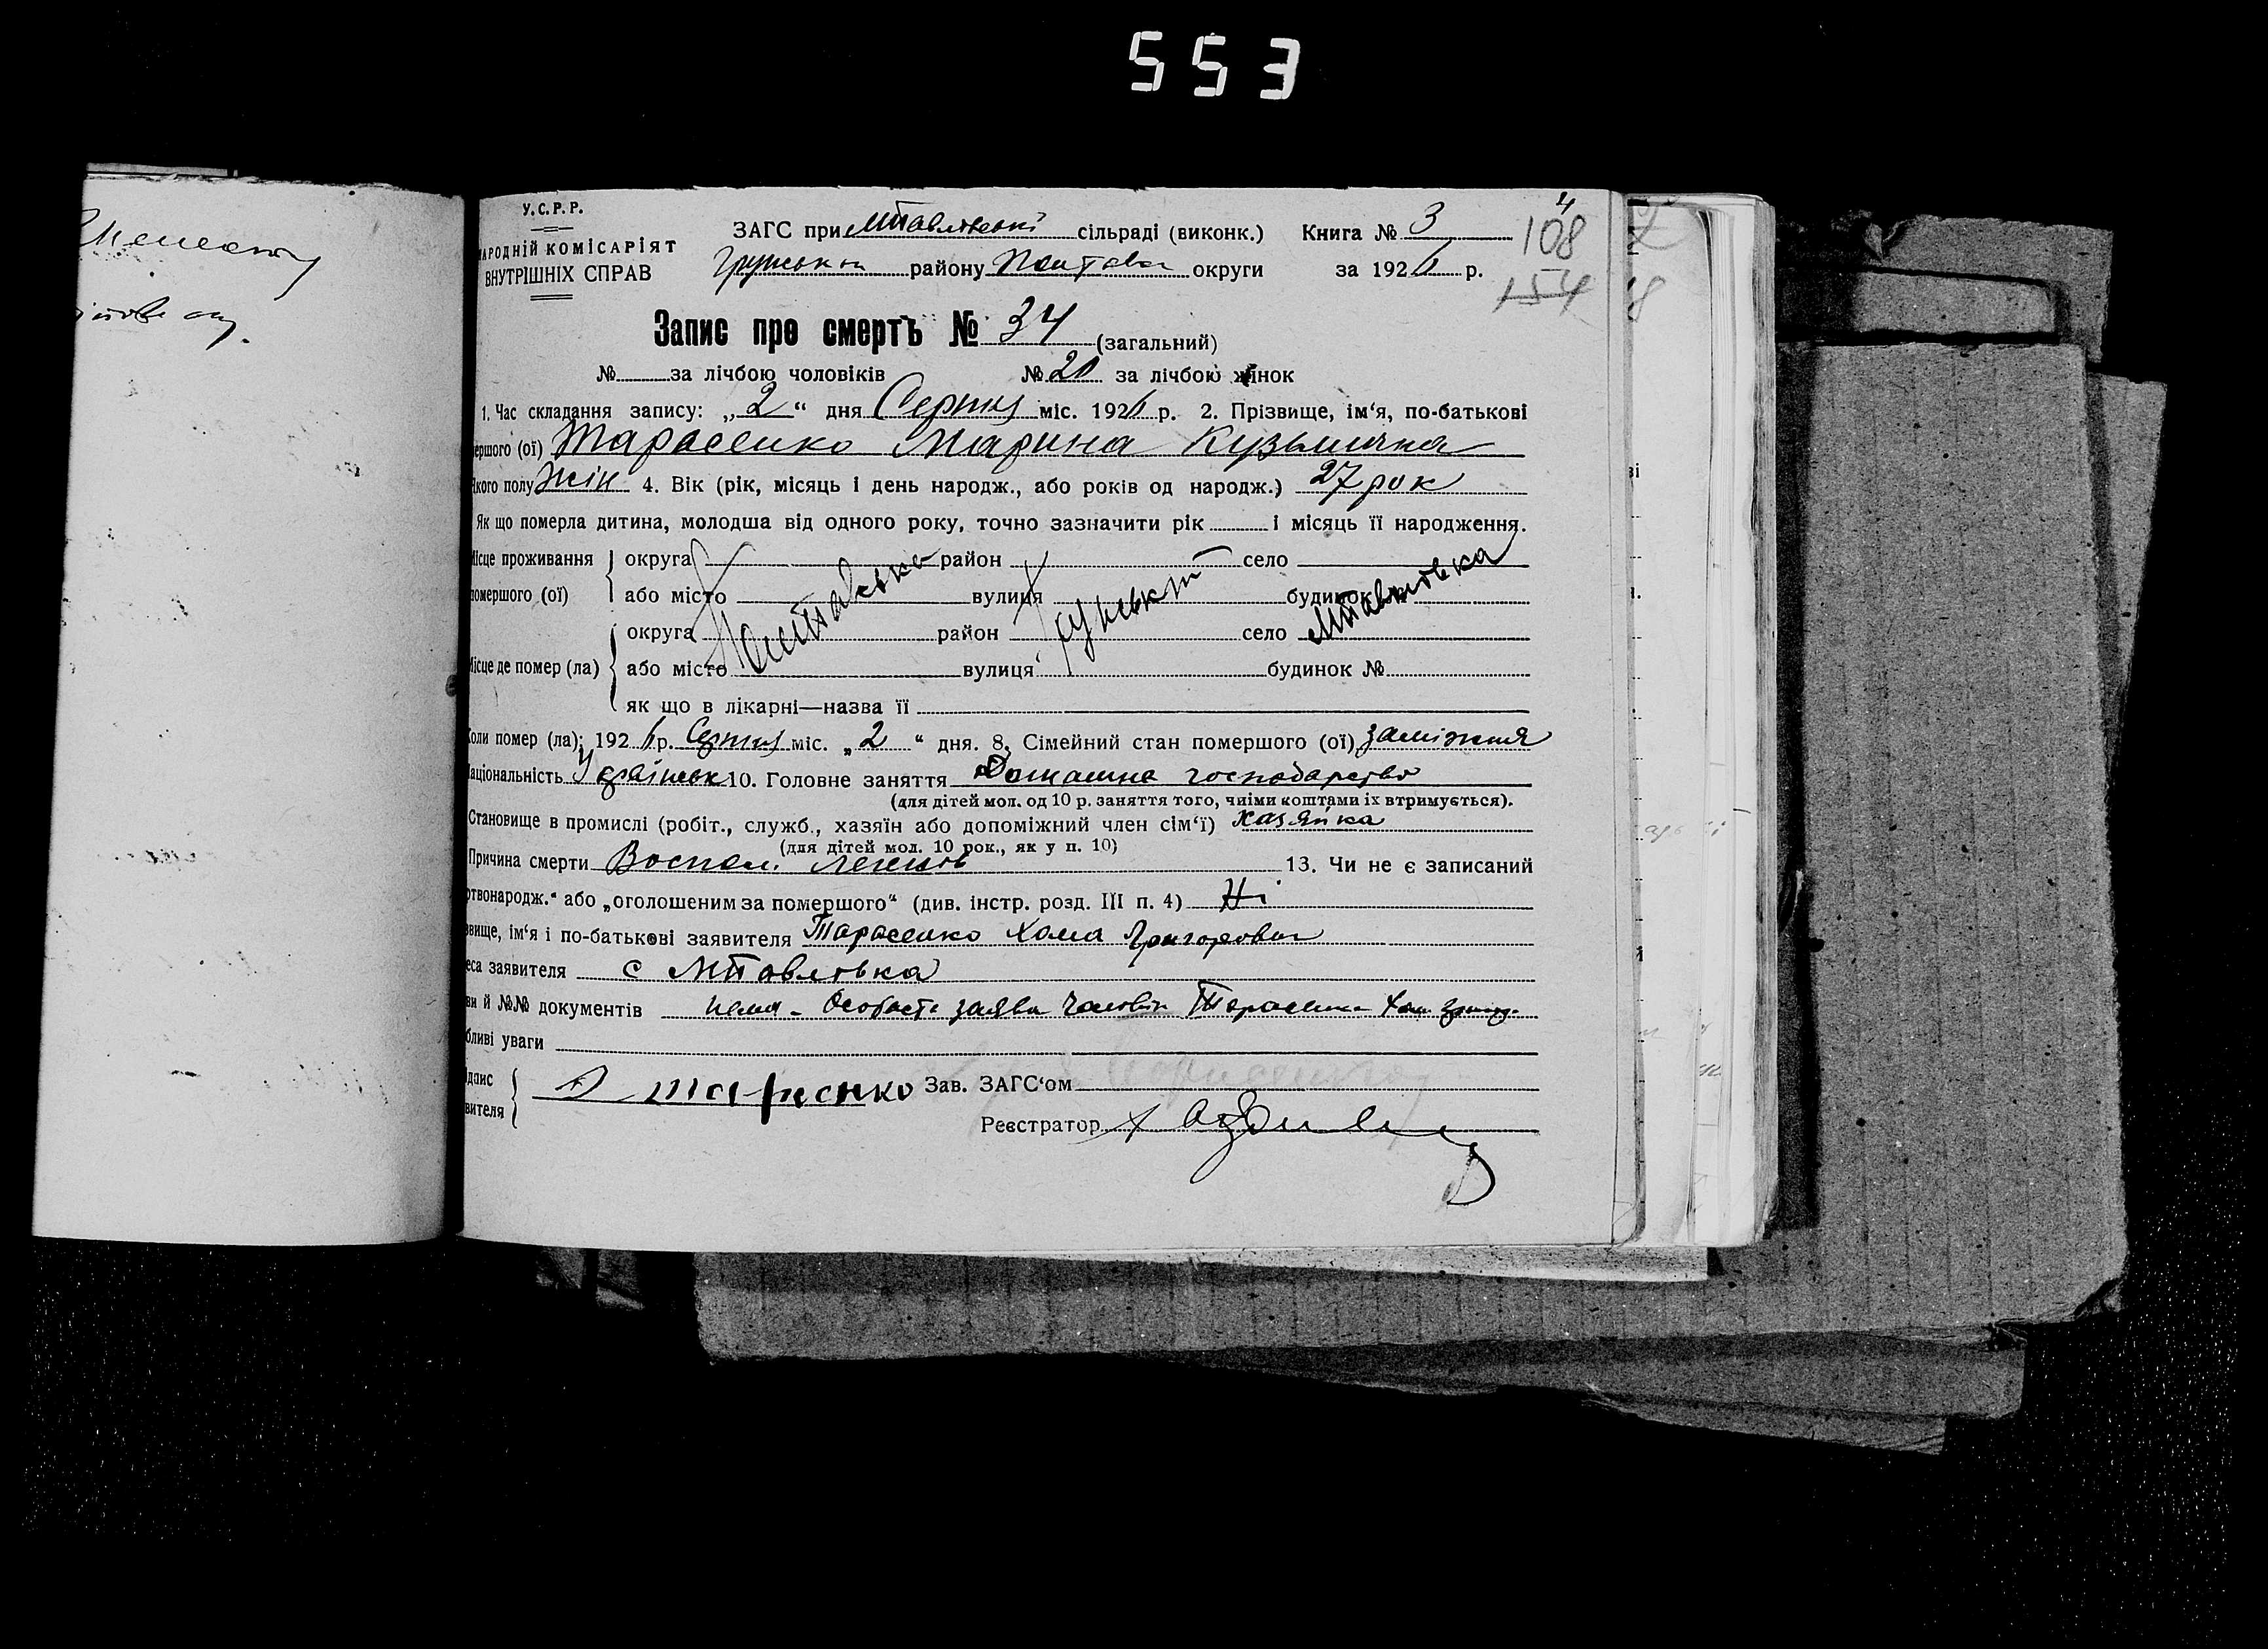 553
У.С.Р.Р.
НАРОДНІЙ КОМІСАРІЯТ
ВНУТРІШНІХ СПРАВ
ЗАГС при МПавлівські сільраді (виконк.) Книга № 3
району Полтавськ округи за 1926 р.
4
108
154
Запис про смерть № 34 (загальний)
№ за лічбою чоловіків № 20 за лічбою жінок
1. Час складання запису: „2“ дня Серпня міс. 1926 р. 2. Прізвище, ім‘я, по-батькові
мершого (ої) Тарасенко Марина Кузьмична
Якого полу Жін 4. Вік (рік, місяць і день народж., або років од народж.) 27 рок
Як що померла дитина, молодша від одного року, точно зазначити рік і місяць її народження.
Місце проживання округа район село
помершого (ої) або місто вулиця будинок
Полтавська МПавлівка
округа район село
Місце де помер (ла) або місто вулиця будинок №
як що в лікарні—назва її
Коли помер (ла): 1926 р. Серпня міс. „2“ дня. 8. Сімейний стан помершого (ої) заміжня
Національність Українськ 10. Головне заняття Домашнє господарство
(для дітей мол. од 10 р. заняття того, чиїми коштами їх втримується).
Становище в промислі (робіт., служб., хазяїн або допоміжний член сім‘ї) Хазяйка
(для дітей мол. 10 рок., як у п. 10)
Причина смерти Воспал. легких 13. Чи не є записаний
ртвонародж.“ або „оголошеним за помершого“ (див. інстр. розд. III п. 4) Ні
звище, ім‘я і по-батькові заявителя Тарасенко Хома Григорович
еса заявителя с МПавлівка
ви й №№ документів нема - Особиста заява Тарасенка Хоми Григор.
бливі уваги
ідпис
вителя
Зав. ЗАГС‘ом
Реєстратор